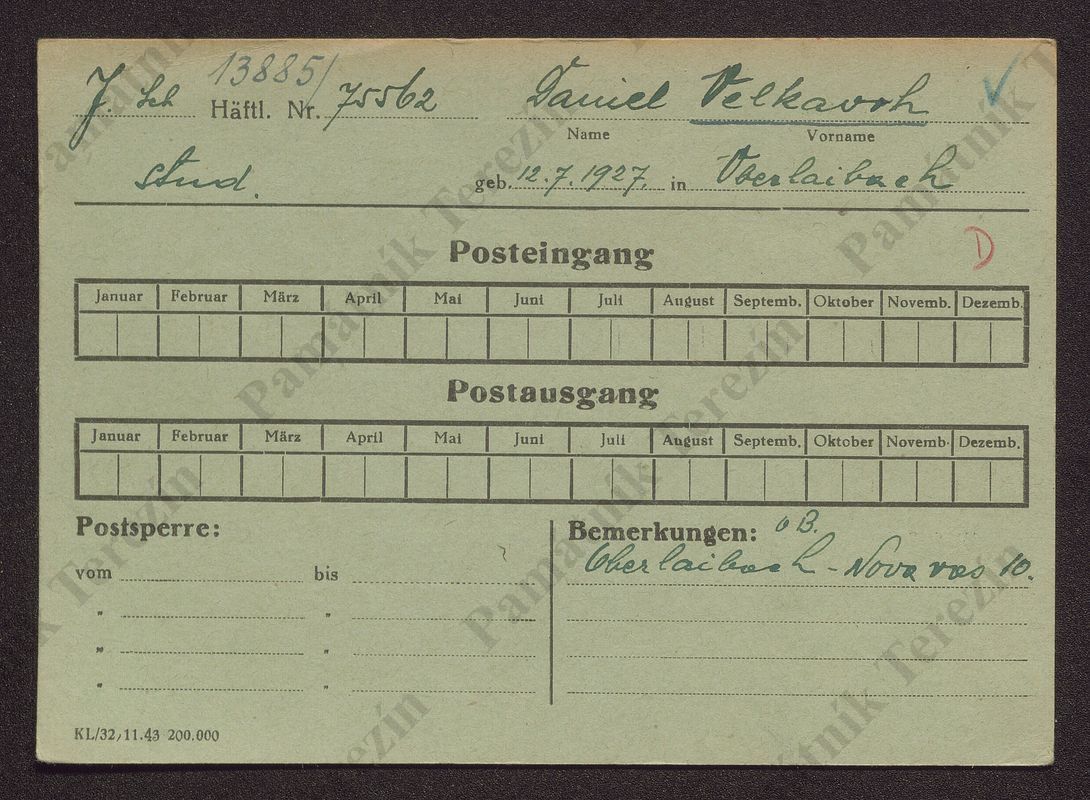 J. Sch Häftl. Nr. 13885/ 75562 Daniel Velkavrh
Name Vorname
stud. geb. 12.7.1927. in Oberlaibach
Posteingang
D
Januar Februar März April Mai Juni Juli August Septemb. Oktober Novemb. Dezemb.
Postausgang
Januar Februar März April Mai Juni Juli August Septemb. Oktober Novemb. Dezemb.
Postsperre: Bemerkungen: o B.
Oberlaibach - Nova vas 10.
vom bis
" "
" "
" "
KL/32/11.43 200.000
Památník Terezín